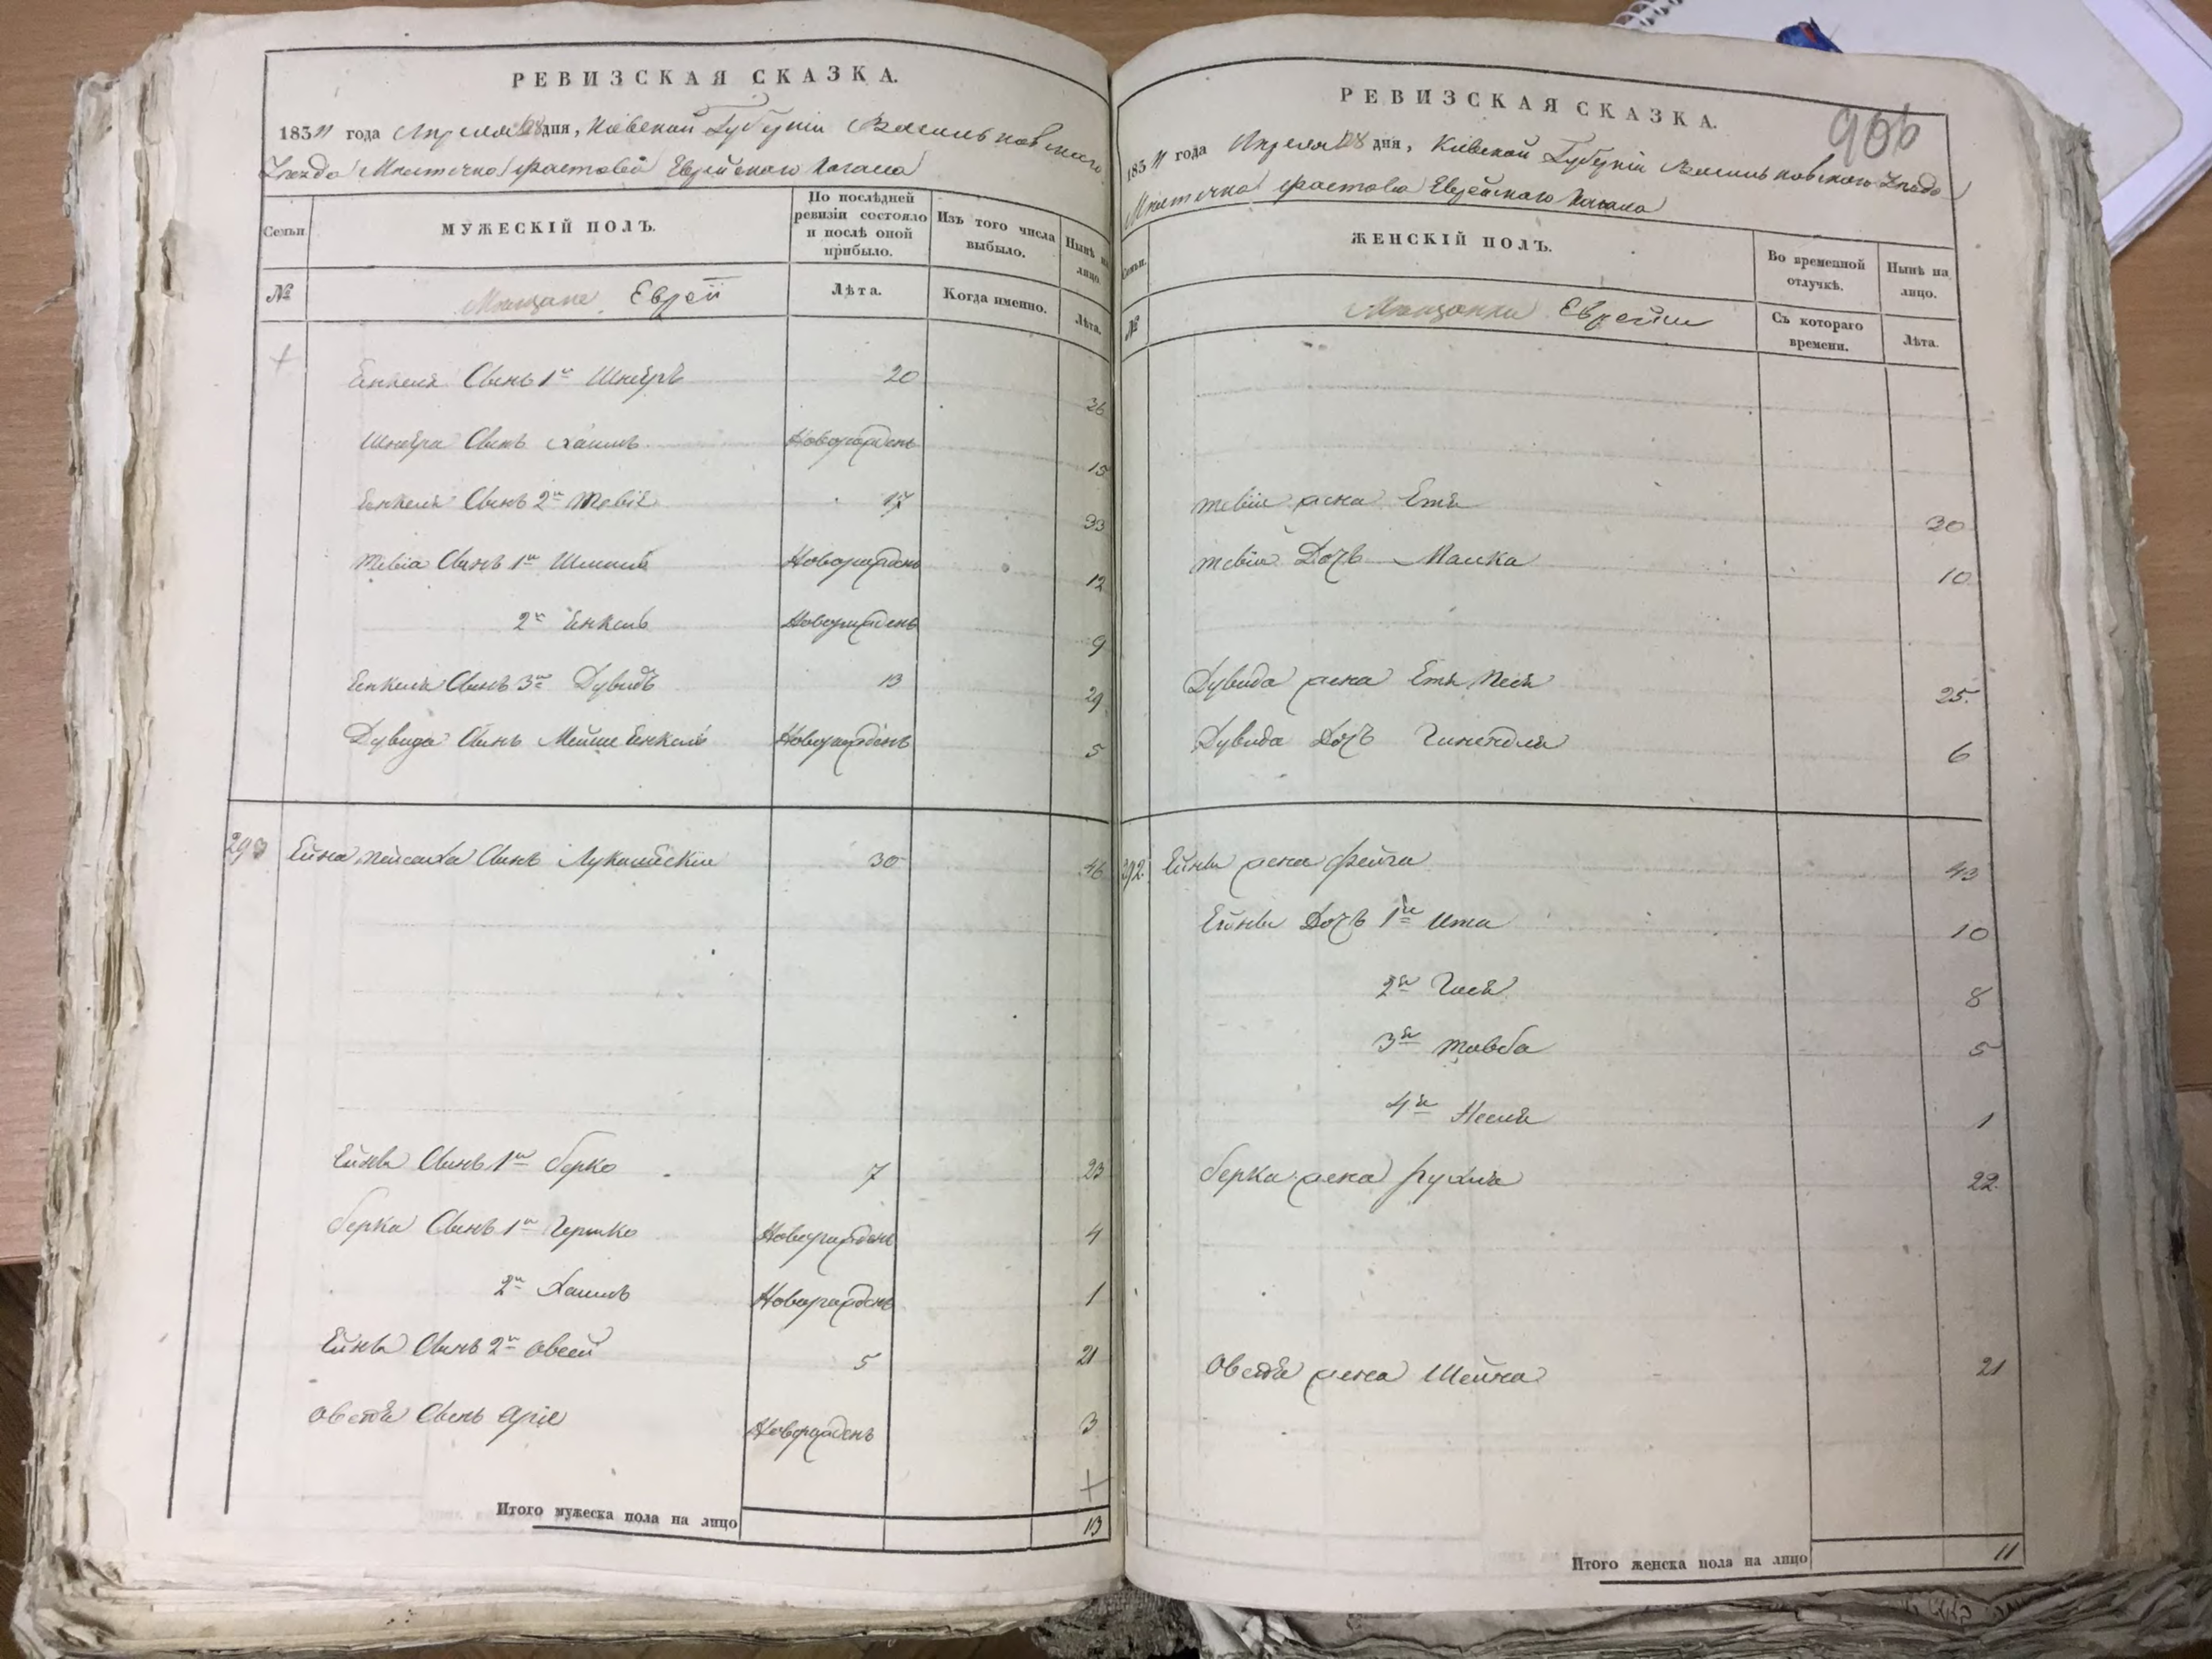 РЕВИЗСКАЯ СКАЗКА.
183 года Апреля 28 дня, Кіевской Губерніи Васильковскаго
Уезда Местечка Фастова Еврейского Кагала
Семьи.
МУЖЕСКІЙ ПОЛЪ.
По послѣдней ревизіи состояло и послѣ оной прибыло.
Изъ того числа выбыло.
Нынѣ на лицо.
№
Мещане Евреи
Лѣта.
Когда именно.
Лѣта.
Енкеля Сынъ 1й Шнеръ 20 36
Шнера Сынъ Хаимъ Новорожденъ 15
Енкеля Сынъ 2й Тевіе 17 33
Тевіа Сынъ 1й Новорожденъ 12
2й Енкель Новорожденъ 9
Енкеля Сынъ 3й Дувидъ 13 29
Дувида Сынъ Мейше Енкель Новорожденъ 5
Ейна Пейсаха Сынъ 30 46
Ейны Сынъ 1й Берко 7 23
Берка Сынъ 1й Гершко Новорожденъ 4
2й Хаимъ Новорожденъ 1
Ейны Сынъ 2й Овсей 5 21
Овсея Сынъ Аріе Новорожденъ 3
Итого мужеска пола на лицо 13
906
РЕВИЗСКАЯ СКАЗКА.
183 года Апреля 28 дня, Кіевской Губерніи Васильковского Уезда
Местечка Фастова Еврейского Кагала
Семьи.
ЖЕНСКІЙ ПОЛЪ.
Во временной отлучкѣ.
Нынѣ на лицо.
№
Мещанки Еврейки
Съ котораго времени.
Лѣта.
Тевіи жена Етя 30
Тевіи Дочь Малка 10
Дувида жена Етя Песя 25
Дувида Дочь Гинендля 6
292. Ейны жена Фейга 43
Ейны Дочь 1я Ита 10
2я Гися 8
3я Товба 5
4я 1
Берка жена Рухля 22
Овсея жена Шейна 21
Итого женска пола на лицо 11